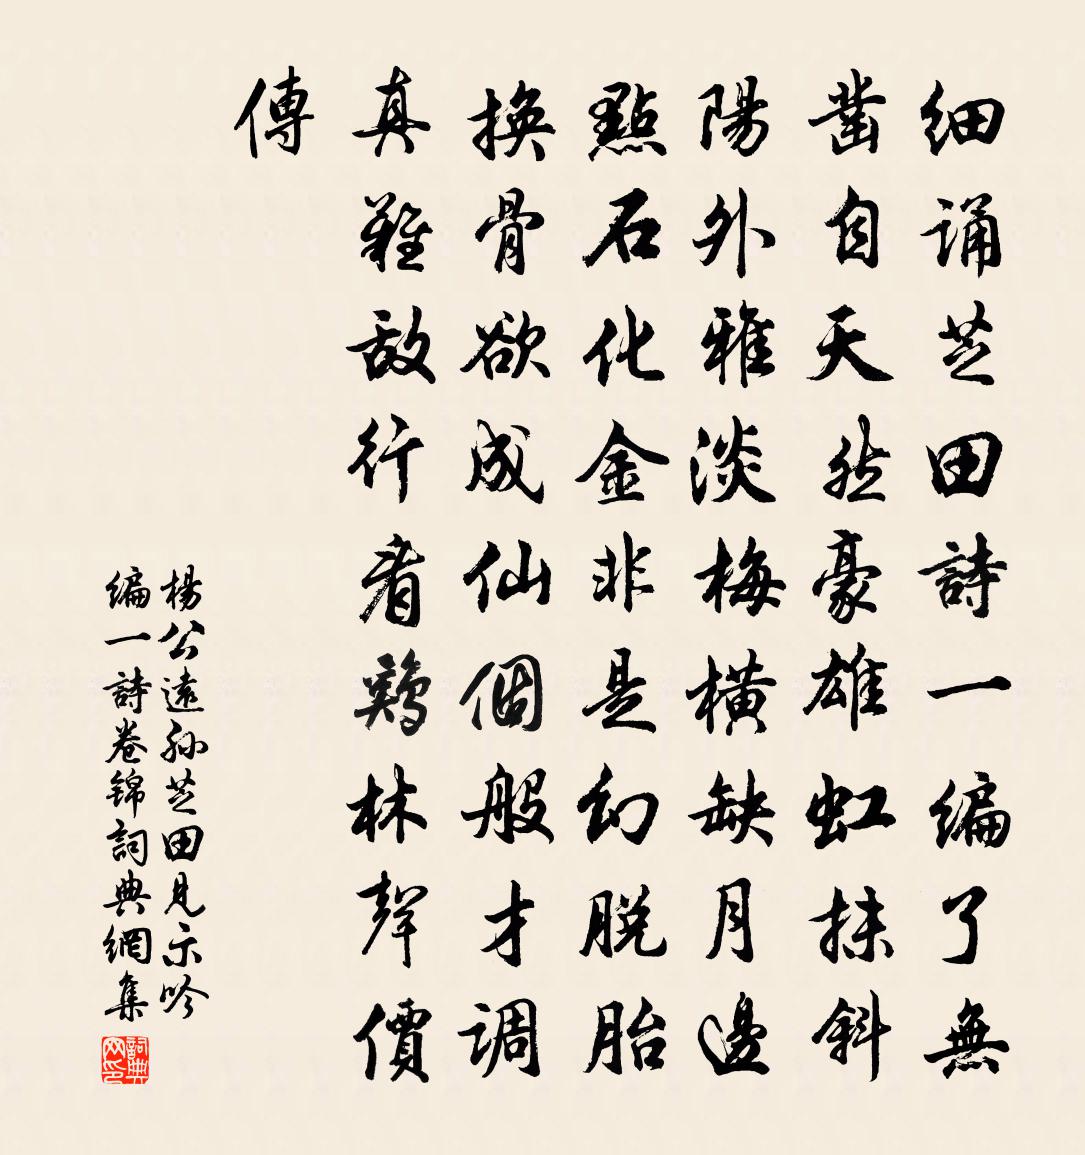 细诵芝田詩一编了無
凿自天然豪雄虹抹斜
陽外雅淡梅橫缺月邊
點石化金非是幻脱胎
换骨欲成仙個般才调
真難敌行看鷄林聲價
傳
楊公遠孙芝田見示吟
编一詩卷锦詞典網集
詞典
网印